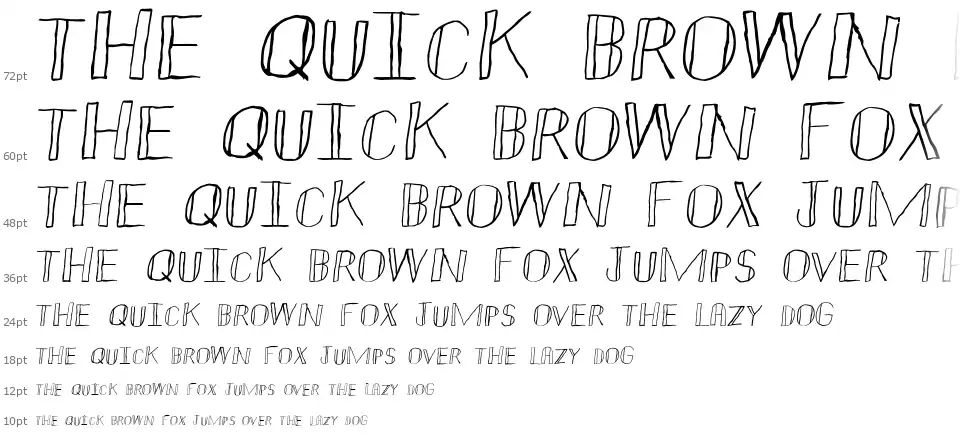 72pt THE QUICK BROWN
60pt THE QUICK BROWN FOX
48pt THE QUICK BROWN FOX JUMP
36pt THE QUICK BROWN FOX JUMPS OVER TH
24pt THE QUICK BROWN FOX JUMPS OVER THE LAZY DOG
18pt THE QUICK BROWN FOX JUMPS OVER THE LAZY DOG
12pt THE QUICK BROWN FOX JUMPS OVER THE LAZY DOG
10pt THE QUICK BROWN FOX JUMPS OVER THE LAZY DOG